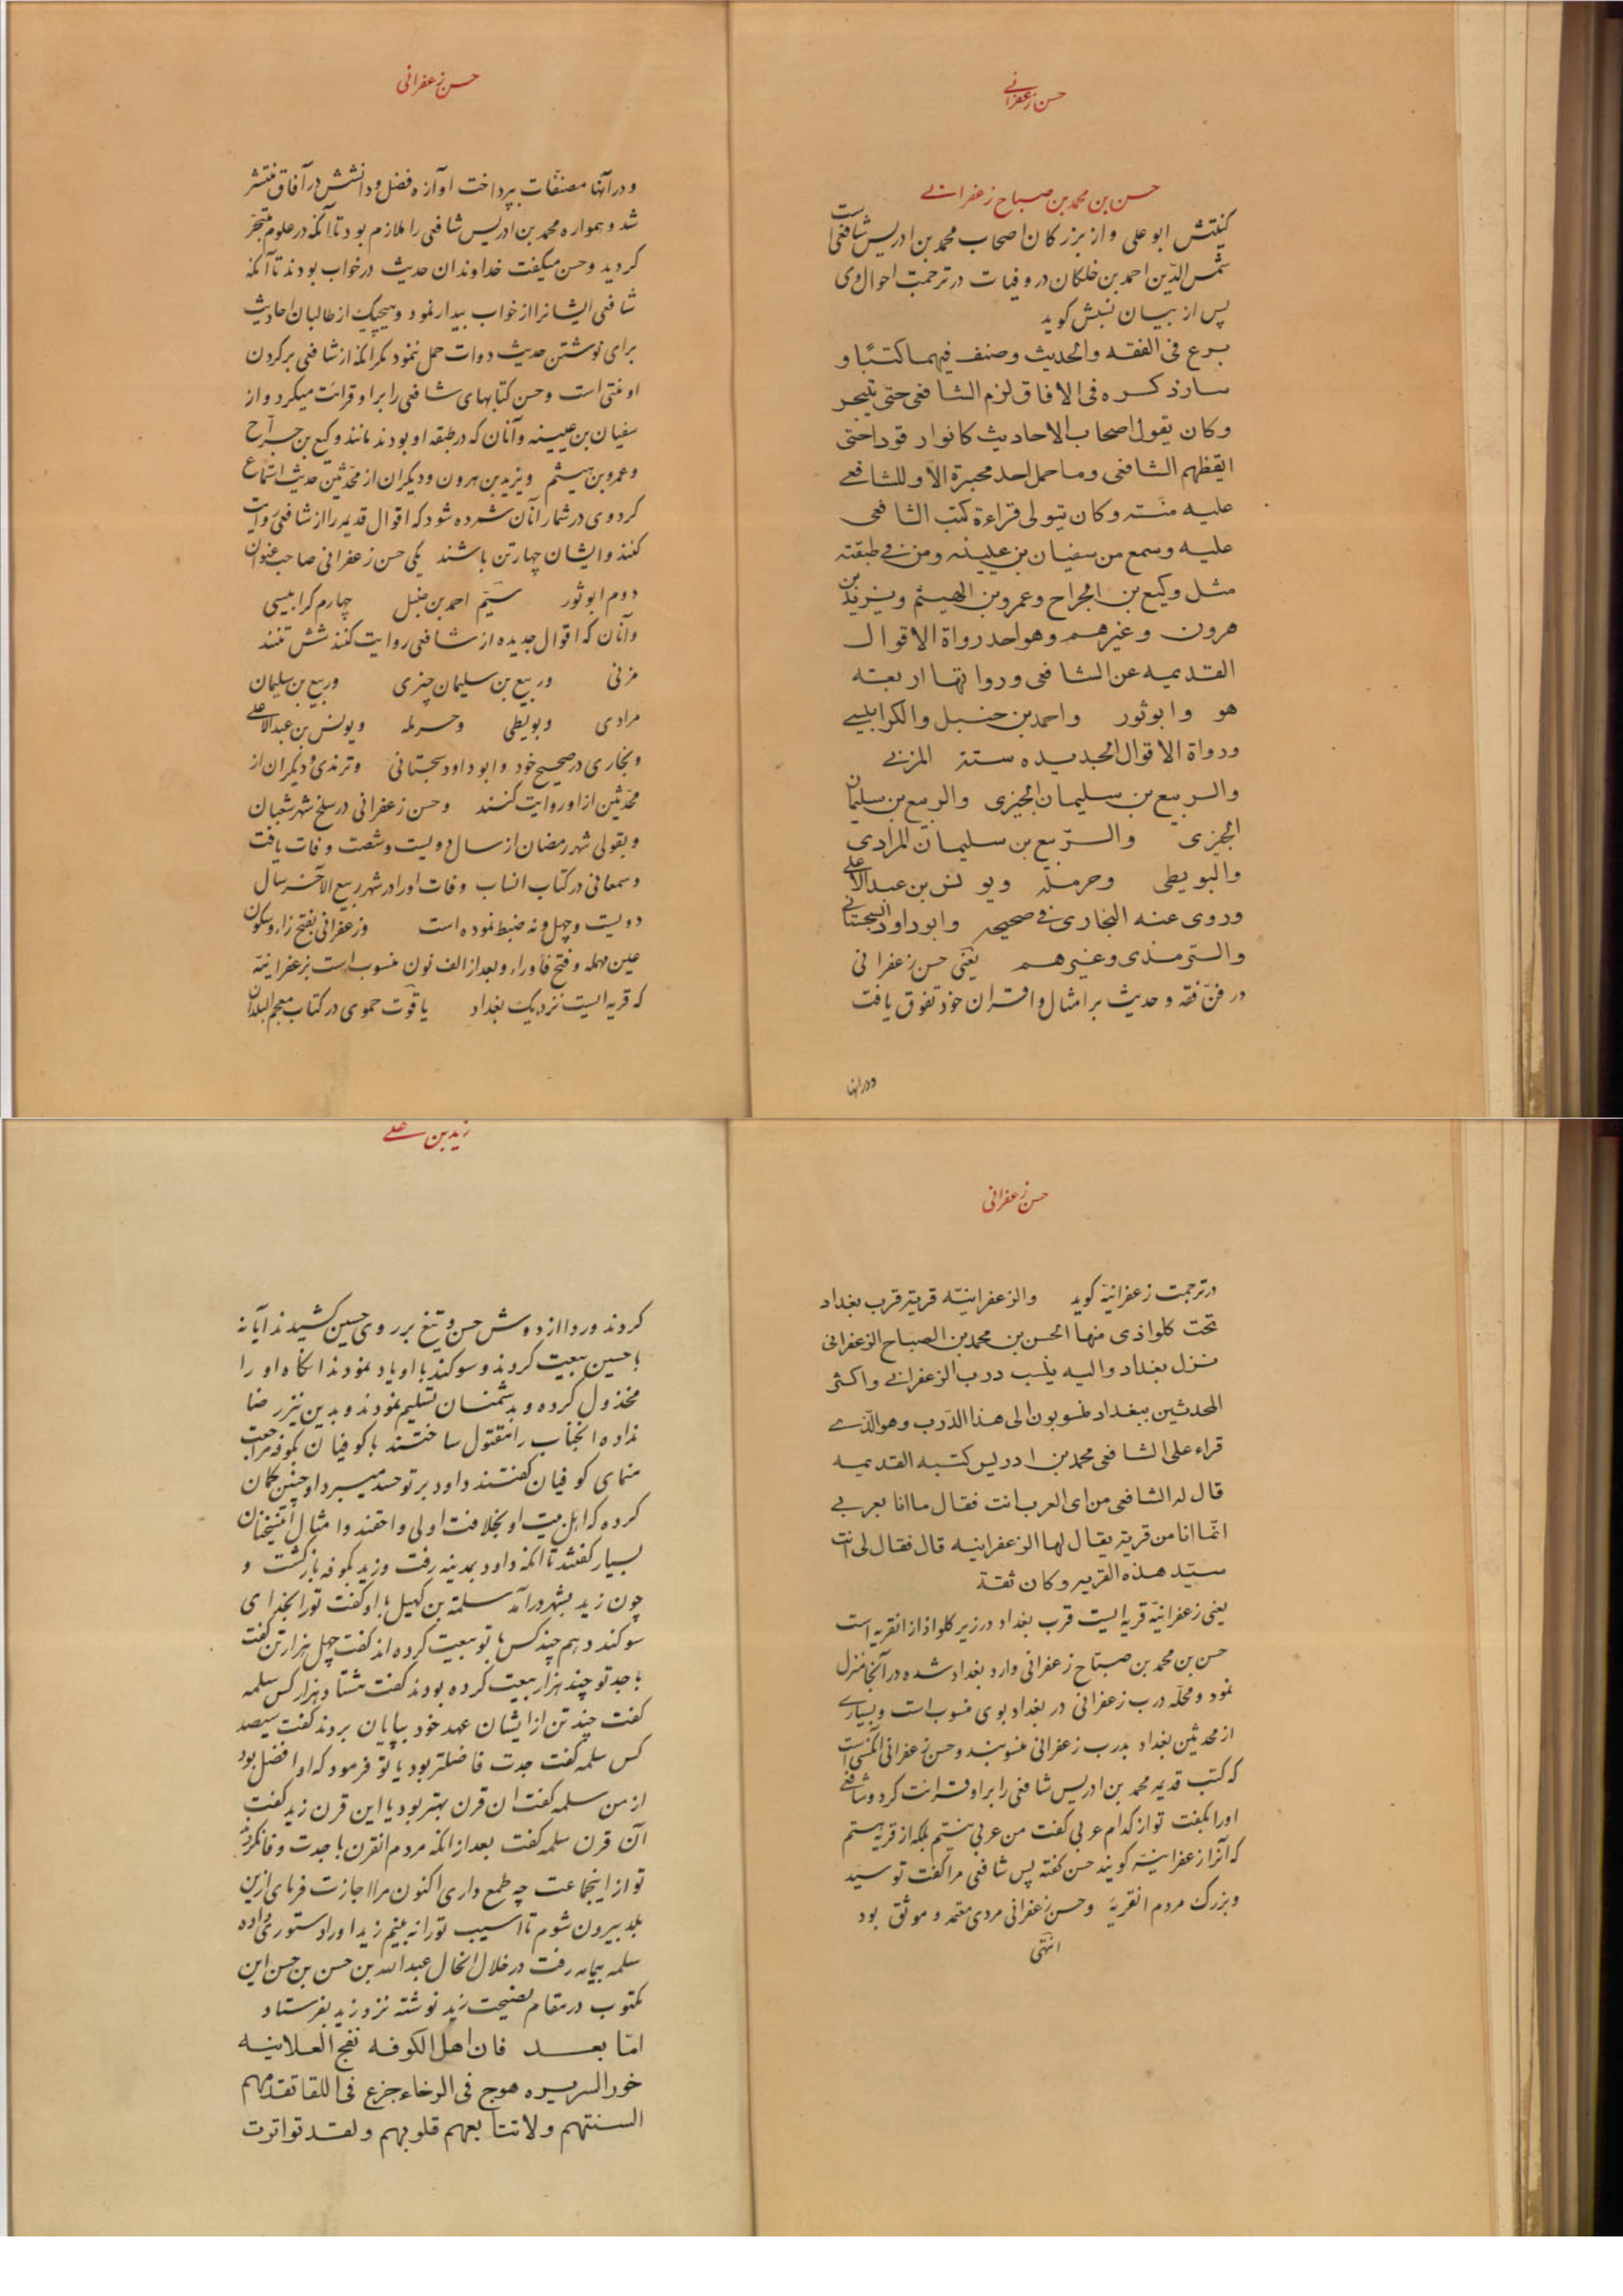 حسن زعفرانی
حسن بن محمد بن صباح زعفرانی
کنیتش ابو علی و از بزرکان اصحاب محمد بن ادریس شافعی است
شمس الدین احمد بن خلکان در وفیات در ترجمت احوال وی
پس از بیان نسبش کوید
برع فی الفقه والحدیث وصنف فیهما کتبًا و
سار ذکره فی الافاق لزم الشافعی حتی تبحر
وکان یقول اصحاب الاحادیث کانوا رقودا حتی
ایقظهم الشافعی وما حمل احد محبرة الّا وللشافعی
علیه منّته وکان یتولی قراءة کتب الشافعی
علیه وسمع من سفیان بن عیینه ومن فی طبقته
مثل وکیع بن الجراح وعمرو بن الهیثم ویزید بن
هرون وغیرهم وهو احد رواة الاقوال
القدیمیه عن الشافعی ورواتها اربعته
هو وابوثور واحمد بن حنبل والکرابیسی
ورواة الاقوال الجدیده ستته المزنی
والربیع بن سلیمان الجیزی والربیع بن سلیمان
الجیزی والرّبیع بن سلیمان المرادی
والبویطی وحرملة ویونس بن عبدالاعلی
وروی عنه البخاری فی صحیحه وابوداود السجستانی
والترمذی وغیرهم یعنی حسن زعفرانی
در فنّ فقه و حدیث بر امثال و اقران خود تفوق یافت
ودرانها
حسن زعفرانی
و در آنها مصنفات بپرداخت و آوازه فضل و دانشش در آفاق منتشر
شد و همواره محمد بن ادریس شافعی را ملازم بود تا آنکه در علوم متبحّر
کردید و حسن میکفت خداوندان حدیث در خواب بودند تا آنکه
شافعی ایشانرا از خواب بیدار نمود و هیچیک از طالبان احادیث
برای نوشتن حدیث دوات حمل ننمود مکر آنکه از شافعی بر کردن
او منتی است و حسن کتابهای شافعی را بر او قرائت میکرد و از
سفیان بن عیینه و آنان که در طبقه او بودند مانند وکیع بن جراح
و عمرو بن هیثم و یزید بن هرون و دیکران از محدّثین حدیث استماع
کرد و وی در شمار آنان شمرده شود که اقوال قدیمه را از شافعی روایت
کنند و ایشان چهار تن باشند یکی حسن زعفرانی صاحب عنوان
دوم ابوثور سیّم احمد بن حنبل چهارم کرابیسی
و آنان که اقوال جدیده از شافعی روایت کنند شش تنند
مزنی و ربیع بن سلیمان جیزی و ربیع بن سلیمان
مرادی و بویطی و حرمله و یونس بن عبدالاعلی
و بخاری در صحیح خود و ابو داود سجستانی و ترمذی و دیکران از
محدّثین از او روایت کنند و حسن زعفرانی در سلخ شهر شعبان
و بقولی شهر رمضان از سال دویست و شصت وفات یافت
و سمعانی در کتاب انساب وفات او را در شهر ربیع الآخر سال
دویست و چهل و نه ضبط نموده است و زعفرانی بفتح زاء و سکون
عین مهمله و فتح فا و راء و بعد از الف نون منسوب است بزعفرانیّه
که قریه ایست نزدیک بغداد یاقوت حموی در کتاب معجم البلدان
حسن زعفرانی
در ترجمت زعفرانیّه کوید والزعفرانیّه قریة قرب بغداد
تحت کلواذی منها الحسن بن محمد بن الصباح الزعفرانی
نزل بغداد والیه ینسب درب الزعفرانی واکثر
المحدثین ببغداد منسوبون الی هذا الدّرب وهو الّذی
قراء علی الشافعی محمد بن ادریس کتبه القدیمیه
قال له الشافعی من ای العرب انت فقال ما انا بعربی
انّما انا من قریة یقال لها الزعفرانیه قال فقال لی انت
سیّد هذه القریه وکان ثقة
یعنی زعفرانیّه قریه ایست قرب بغداد در زیر کلواذا از انقریه است
حسن بن محمد بن صبّاح زعفرانی وارد بغداد شده در آنجا منزل
نمود و محلّه درب زعفرانی در بغداد بوی منسوب است و بسیاری
از محدثین بغداد بدرب زعفرانی منسوبند و حسن زعفرانی آنکسی است
که کتب قدیمه محمد بن ادریس شافعی را بر او قرائت کرد و شافعی
اورا بکفت تو از کدام عربی کفت من عربی نیستم بلکه از قریه هستم
که آنرا زعفرانیّه کویند حسن کفته پس شافعی مرا کفت تو سیّد
و بزرک مردم انقریهٔ و حسن زعفرانی مردی معتمد و موثق بود
انتهی
زید بن علی
کردند و ردا از دوش حسن و تیغ بر روی حسین کشیدند آیا نه
با حسین بیعت کردند و سوکند با او یاد نمودند انکاه او را
مخذول کرده و بدشمنان تسلیم نمودند و بدین نیز رضا
نداده انجناب را مقتول ساختند با کوفیان بکوفه مراجعت
منمای کوفیان کفتند داود بر تو حسد میبرد او چنین کمان
کرده که اهل بیت او بخلافت اولی و احقند و امثال این سخنان
بسیار کفتند تا انکه داود بمدینه رفت و زید بکوفه بازکشت و
چون زید بشهر در آمد سلمة بن کهیل با او کفت تو را بخدای
سوکند دهم چند کس با تو بیعت کرده اند کفت چهل هزار تن کفت
با جد تو چند هزار بیعت کرده بودند کفت هشتاد هزار کس سلمه
کفت چند تن از ایشان عهد خود بپایان بردند کفت سیصد
کس سلمه کفت جدت فاضلتر بود یا تو فرمود که او افضل بود
از من سلمه کفت ان قرن بهتر بود یا این قرن زید کفت
آن قرن سلمه کفت بعد از انکه مردم انقرن با جدت وفا نکردند
تو از اینجماعت چه طمع داری اکنون مرا اجازت فرمای ازین
بلد بیرون شوم تا اسیب تو را نه بینم زید او را دستوری داده
سلمه بیمامه رفت در خلال انحال عبدالله بن حسن بن حسن این
مکتوب در مقام نصیحت زید نوشته نزد زید بفرستاد
امّا بعد فان اهل الکوفه نفج العلانیه
خور السریره هوج فی الرخاء جزع فی اللقا تقدمهم
السنتهم ولا تتابعهم قلوبهم ولقد تواترت